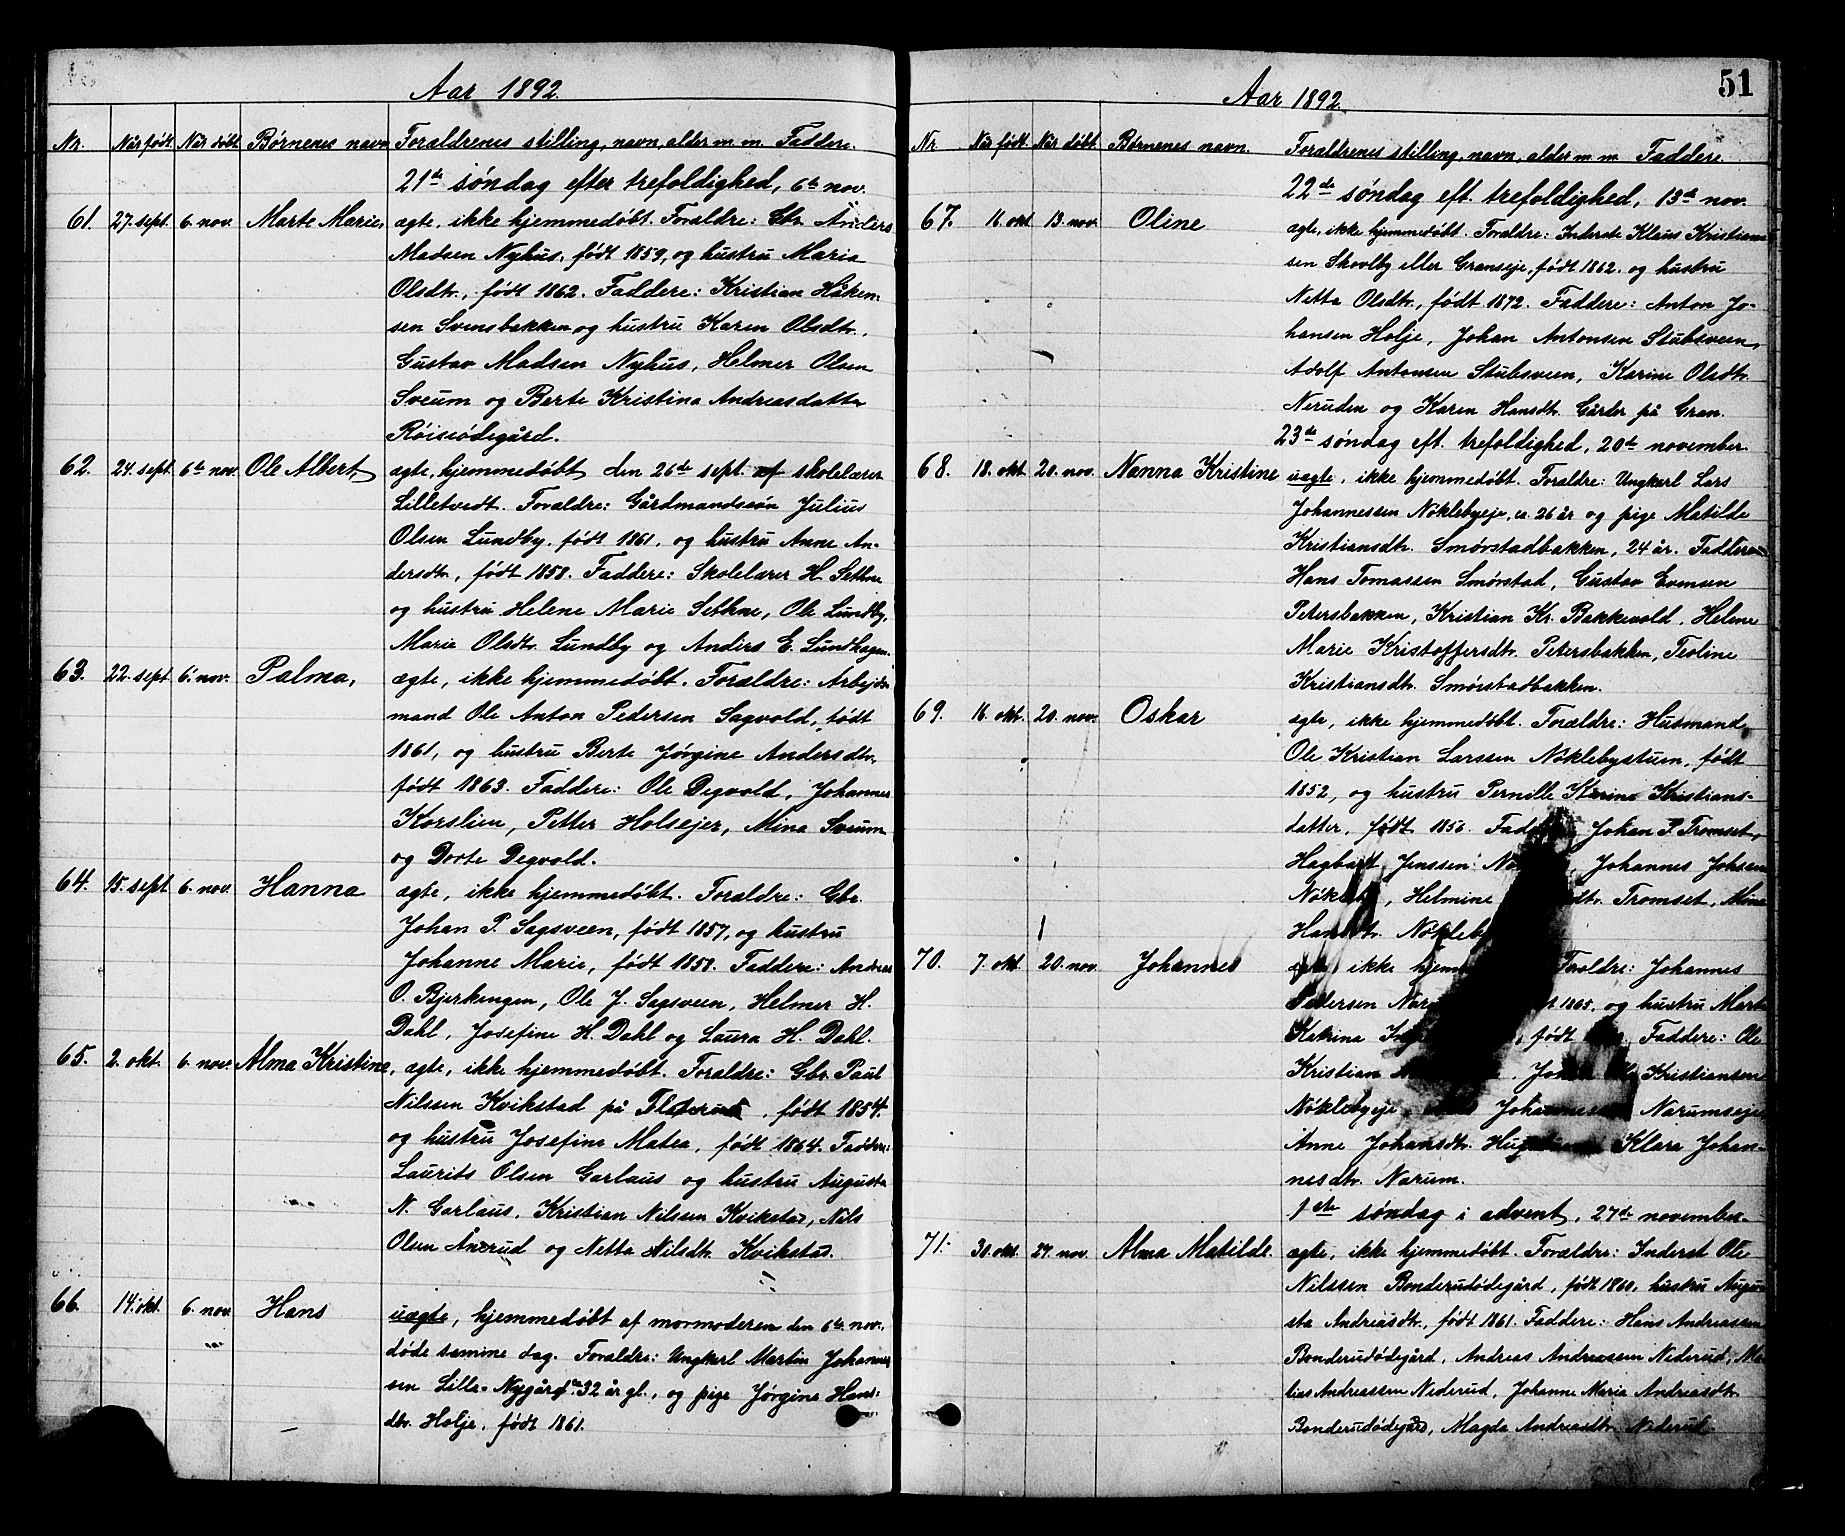 Aar 1892.
Nr. Når født. Når døbt. Børnenes navn. Forældrenes stilling, navn, alder m. m. Faddere.
21de søndag efter trefoldighed, 6te nov.
61. 27. sept. 6. nov. Marte Marie, ægte, ikke hjemmedøbt. Forældre: Anders
Madsen Nyhus, født 1859, og hustru Marie
Olsdtr., født 1862. Faddere: Kristian Håken-
sen Svensbakken og hustru Karen Olsdtr.,
Gustav Madsen Nyhus, Helmer Olsen
Sveum og Berte Kristina Andreasdatter
Røisiødegård.
62. 24. sept. 6te nov. Ole Albert, ægte, hjemmedøbt den 26de sept. af skolelærer
Lilletvedt. Forældre: Gårdmandssøn Julius
Olsen Lundby, født 1861, og hustru Anne An-
dersdtr., født 1858. Faddere: Skolelærer H. Sethne
og hustru Helene Marie Sethne, Ole Lundby,
Marie Olsdtr. Lundby og Anders E. Lundhagen.
63. 22. sept. 6. nov. Palma, ægte, ikke hjemmedøbt. Forældre: Arbejds-
mand Ole Anton Pedersen Sagvold, født
1861, og hustru Berte Jørgine Andersdtr.,
født 1863. Faddere: Ole Degvold, Johannes
Korslien, Petter Holsejer, Mina Sveum
og Dorte Degvold.
64. 15. sept. 6. nov. Hanna ægte, ikke hjemmedøbt. Forældre: Gbr.
Johan P. Sagsveen, født 1857, og hustru
Johanne Marie, født 1858. Faddere: Andreas
O. Bjerkengen, Ole J. Sagsveen, Helmer H.
Dahl, Josefine H. Dahl og Laura H. Dahl.
65. 2. okt. 6. nov. Alma Kristine, ægte, ikke hjemmedøbt. Forældre: Gbr. Paul
Nilssen Kvikstad på, født 1854.
og hustru Josefine Matea, født 1864. Faddere:
Laurits Olsen Garlaus og hustru Augusta
N. Garlaus, Kristian Nilssen Kvikstad, Nils
Olsen Ånerud og Netta Nilsdtr. Kvikstad.
66. 14. okt. 6. nov. Hans uægte, hjemmedøbt af mormoderen den 6te nov.,
døde samme dag. Forældre: Ungkarl Martin Johannes-
sen Lille-Nygård 32 år gl., og pige Jørgine Hans-
dtr. Holje, født 1861.
Aar 1892.
51
Nr. Når født. Når døbt. Børnenes navn. Forældrenes stilling, navn, alder m. m. Faddere.
22de søndag eft. trefoldighed, 13de nov.
67. 16. okt. 13. nov. Oline ægte, ikke hjemmedøbt. Forældre: Inderste Klaus Kristian-
sen Skovlby eller Granseje, født 1862. og hustru
Netta Olsdtr., født 1872. Faddere: Anton Jo-
hansen Holje, Johan Antonsen Stubsveen,
Adolf Antonsen Stubsveen, Karine Olsdtr.
Neruden og Karen Hansdtr. Gårder på Gran.
23de søndag eft. trefoldighed, 20de november.
68. 18. okt. 20. nov. Nanna Kristine uægte, ikke hjemmedøbt. Forældre: Ungkarl Lars
Johannessen Nøklebyeje, ca. 26 år og pige Matilde
Kristiansdtr. Smørstadbakken, 24 år. Faddere:
Hans Tomassen Smørstad, Gustav Evensen
Petersbakken, Kristian Kr. Bakkevold, Helene
Marie Kristoffersdtr. Petersbakken, Teoline
Kristiansdtr. Smørstadbakken.
69. 16. okt. 20. nov. Oskar ægte, ikke hjemmedøbt. Forældre: Husmand
Ole Kristian Larssen Nøklebystuen, født
1852, og hustru Pernille Karine Kristians-
datter, født 1856. Johan P. Tromset,
Hagbart Jenssen Johannes Johsen
Helmine Tromset, Mina
70. 7. okt. 20. nov. Johannes ægte, ikke Forældre: Johannes
Pedersen 1865, og hustru Marte
Katrina født Faddere: Ole
Kristian Kristiansen
Nøklebyeje, Johannessen Narumseje,
Anne Johansdtr. Klara Johan-
nesdtr. Narum.
1ste søndag i advent, 27de november.
71. 30. okt. 27. nov. Alma Matilde. ægte, ikke hjemmedøbt. Forældre: Inderst Ole
Nilssen Bonderudødegård, født 1860, hustru Augu-
sta Andreasdtr., født 1861. Faddere: Hans Andreassen
Bonderudødegård, Andreas Andreassen Nederud, Ma-
lias Andreassen Nederud, Johanne Marie Andreasdtr.
Bonderudødegård, Magda Andreasdtr. Nederud.